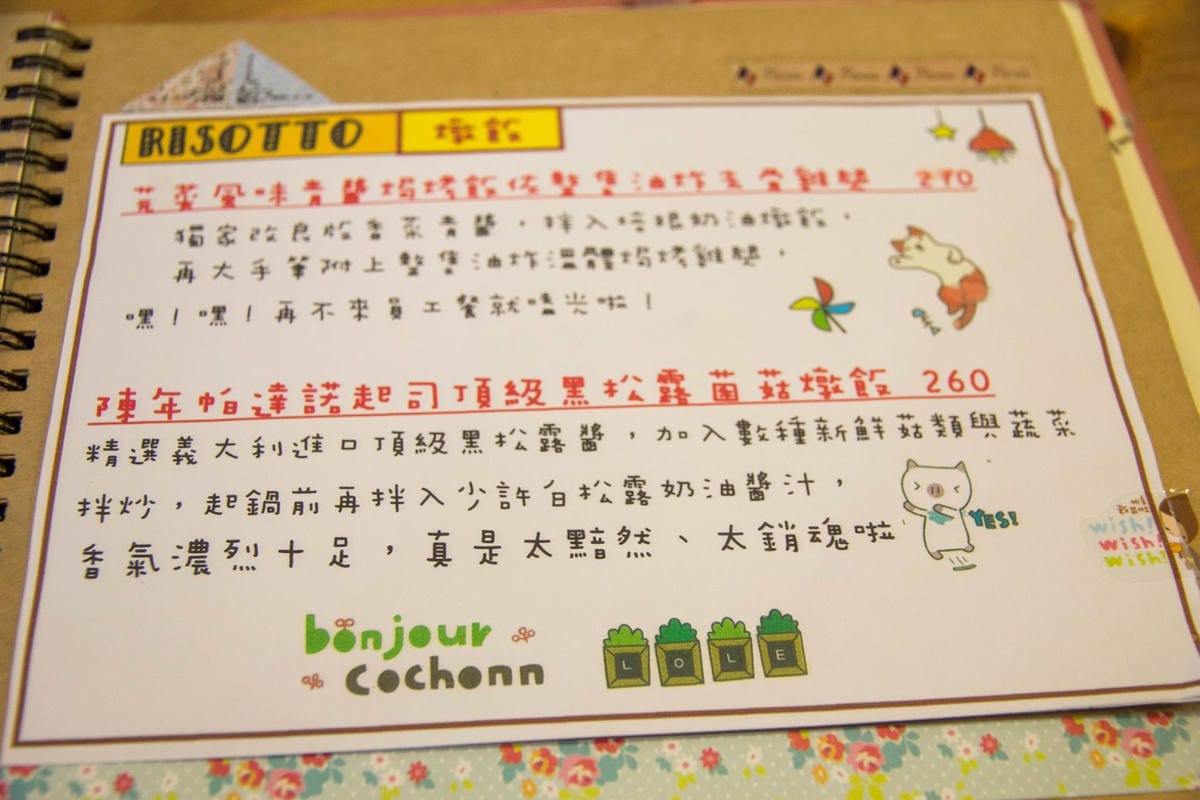 RISOTTO 燉飯
芫荽風味青醬焗烤飯佐整隻油炸去骨雞腿 270
獨家改良版香菜青醬，拌入培根奶油燉飯，
再大手筆附上整隻油炸溫體焗烤雞腿，
嘿！嘿！再不來員工餐就嗑光啦！
陳年帕達諾起司頂級黑松露菌菇燉飯 260
精選義大利進口頂級黑松露醬，加入數種新鮮菇類與蔬菜
拌炒，起鍋前再拌入少許白松露奶油醬汁，
香氣濃烈十足，真是太黯然、太銷魂啦
YES!
wish!
wish!
wish!
bonjour
cochonn
LOLE